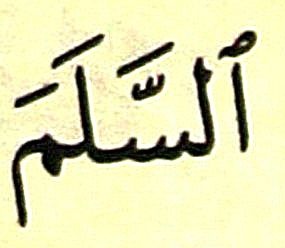 ٱلسَّلَمَ